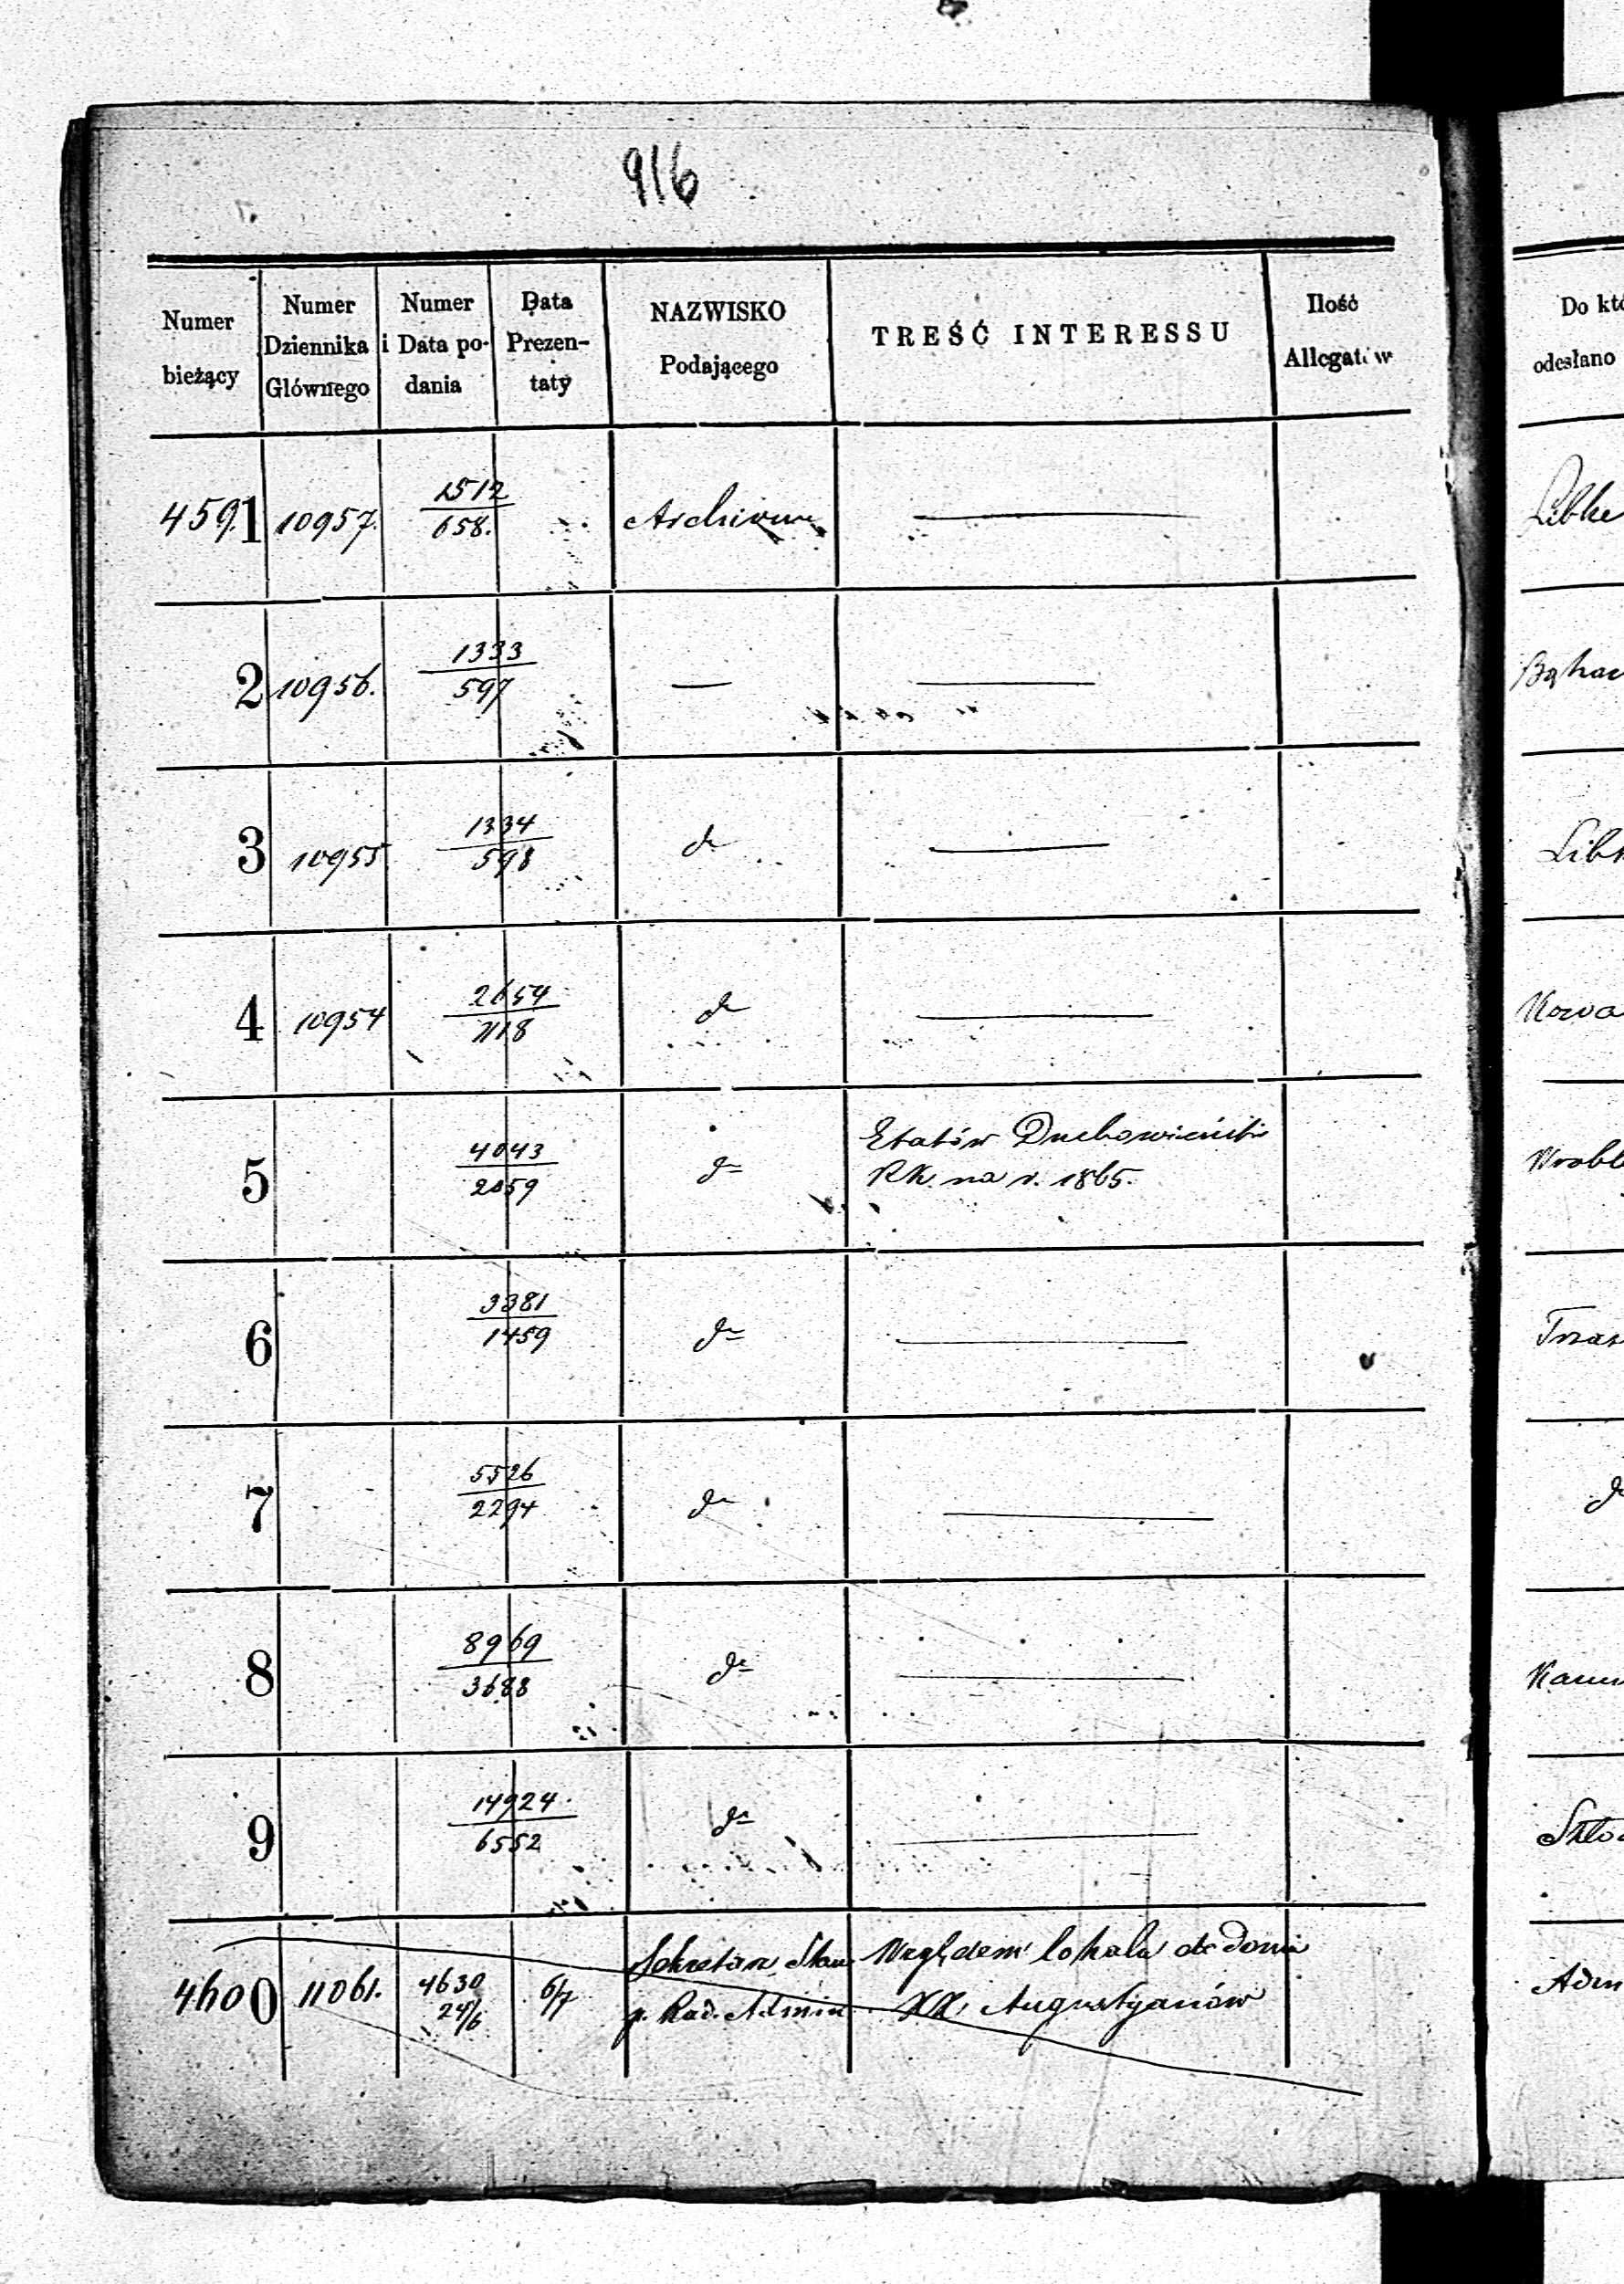 916
Numer bieżący
Numer Dziennika Głównego
Numer i Data podania
Data Prezentaty
NAZWISKO Podającego
TREŚĆ INTERESSU
Ilość Allegatów
Do któ
odesłano
4591 10957. 1512/658. Archivum — Libke
2 10956. 1333/597 — —
3 10955 1334/598 do — Libk
4 10954 2654/1118 do — Nowa
5 4043/2059 do Etatów Duchowieństw Wróbl
RK. na r. 1865.
6 3381/1459 do —
7 5526/2294 do — do
8 8969/3688 do —
9 14924/6552 do —
4600 11061. 4630 24/6 6/7 Sekretarz Stanu Względem lokalu do
p. Rad. Admin XX. Augustyanów Adm